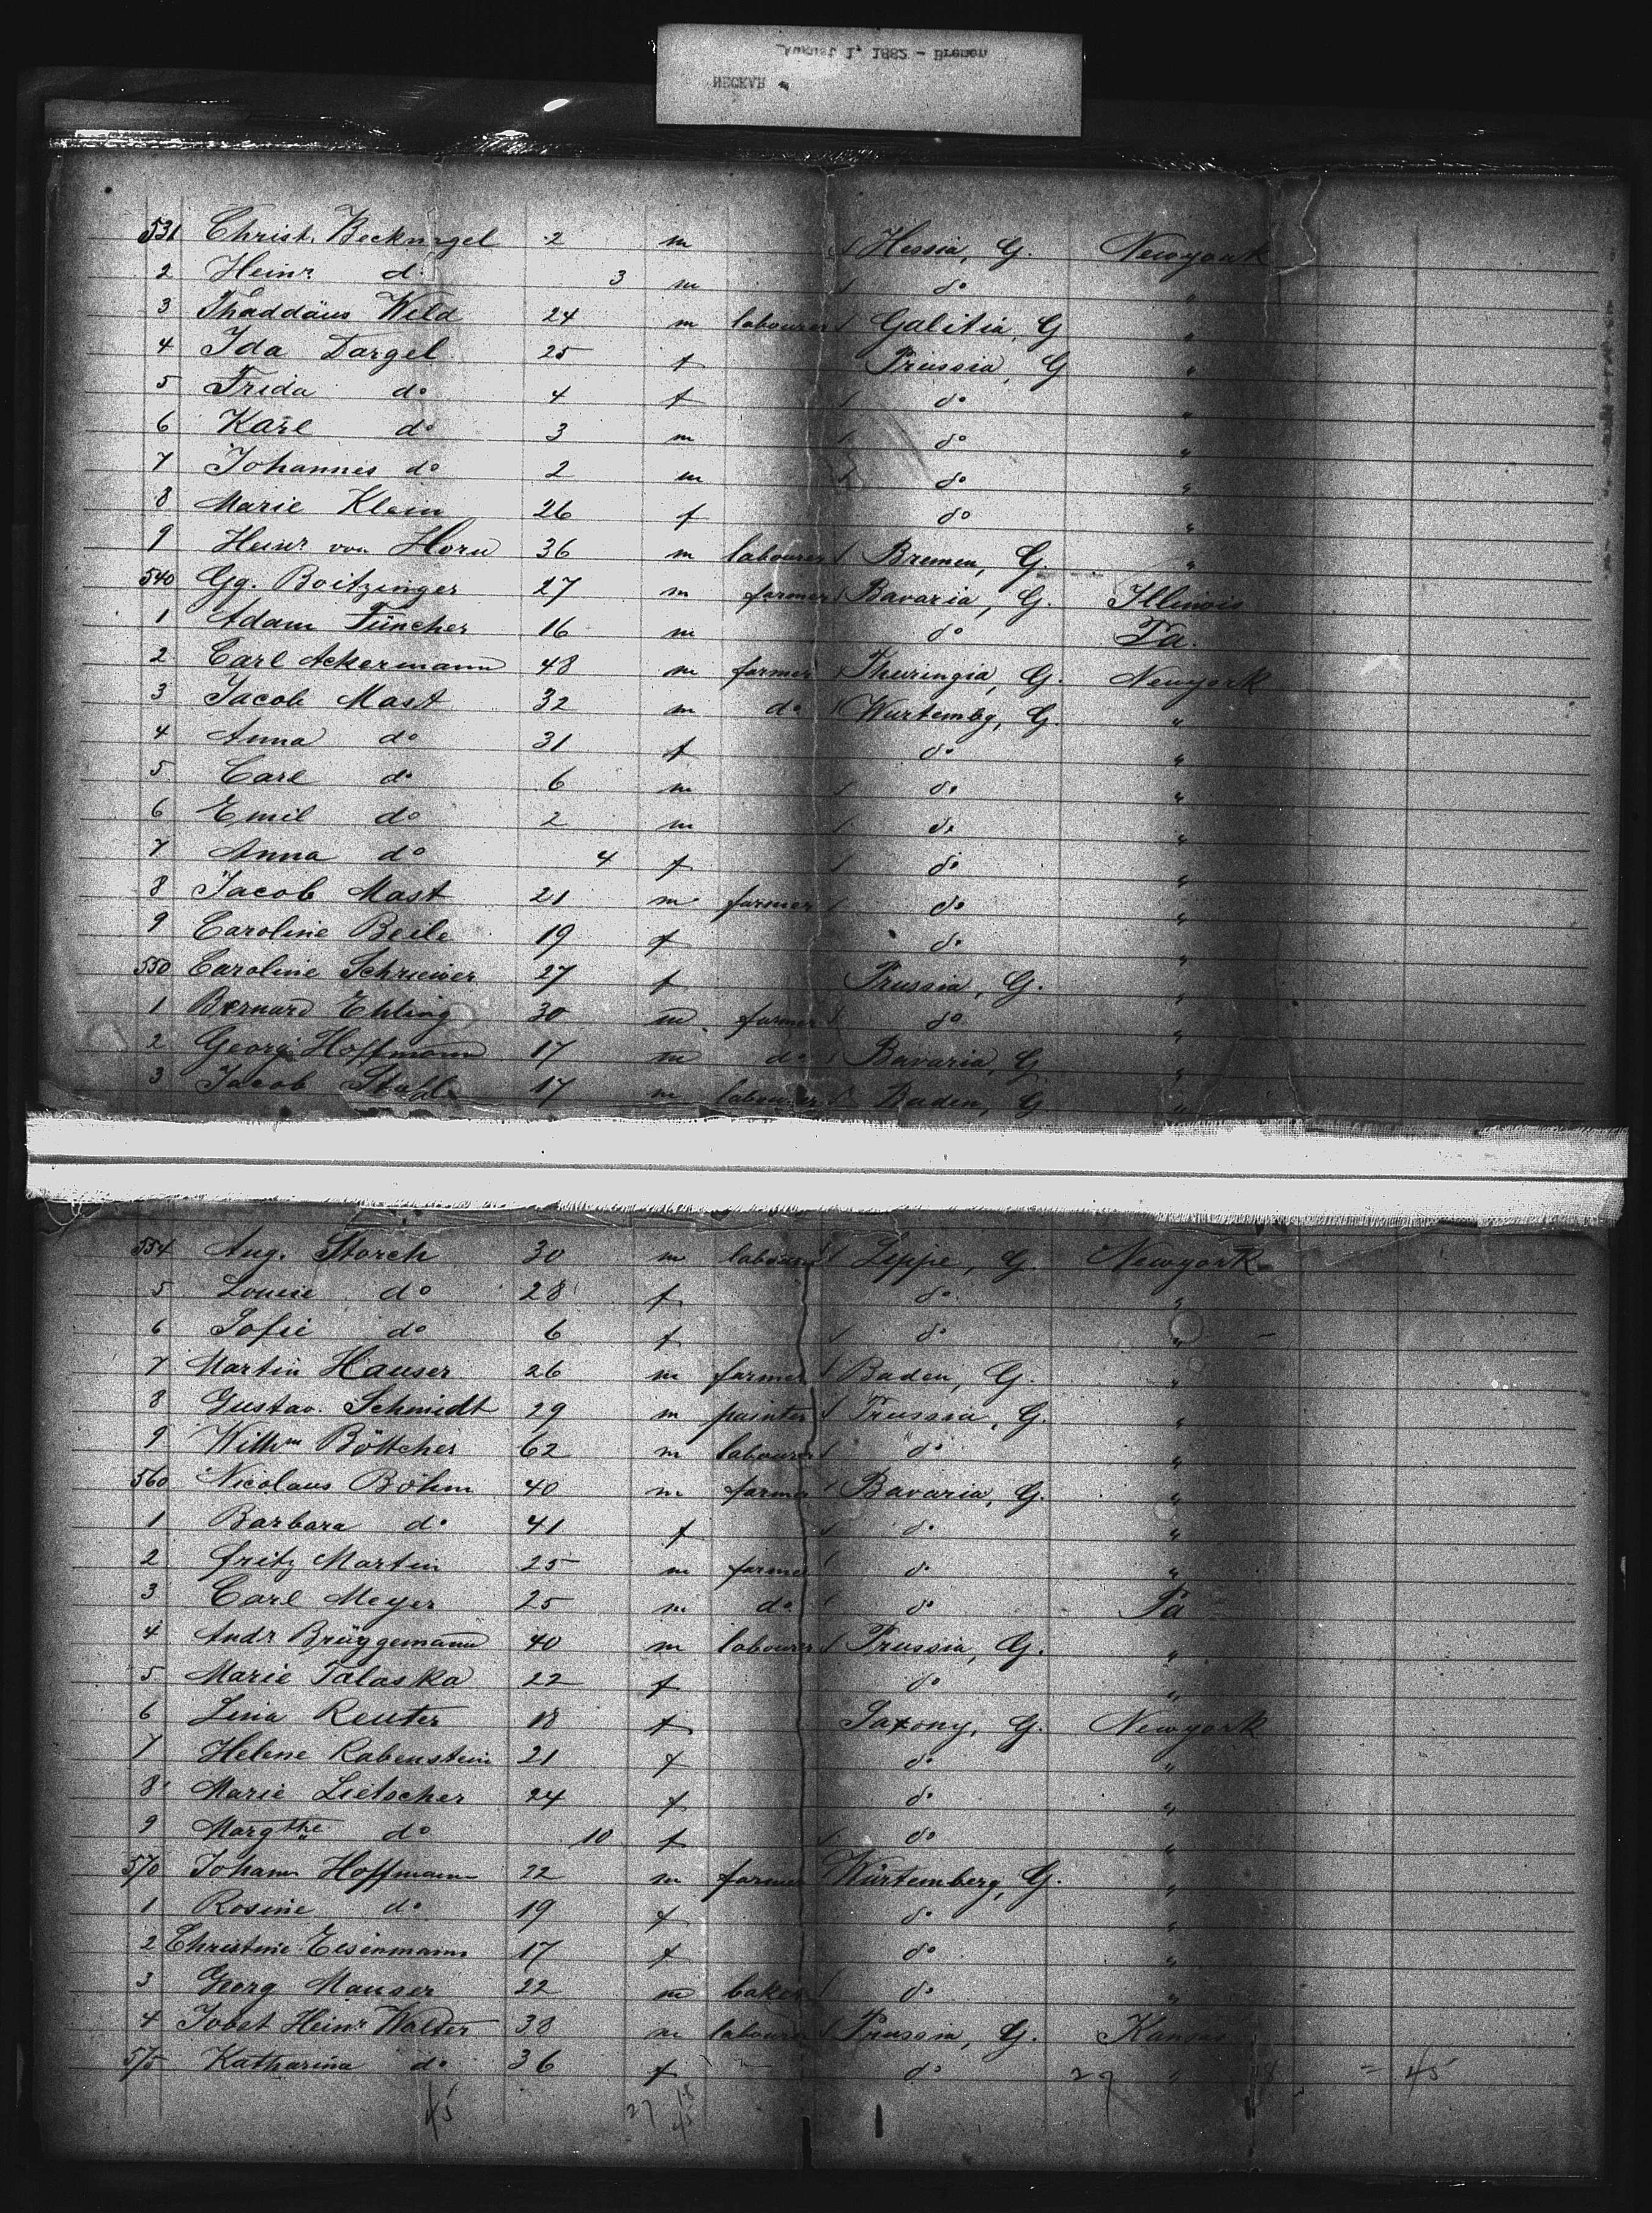 August 1, 1882 - Bremen
NECKAR
531 Christ. Becknagel 2 m / Hessia, G. Newyork
2 Heinr d: 3 m / do "
3 Thaddäus Wild 24 m labourer / Galitia, G "
4 Ida Dargel 25 f Prussia, G "
5 Frida do 4 f / do "
6 Karl do 3 m / do "
7 Johannes do 2 m / do "
8 Marie Klein 26 f do "
9 Heinr von Horn 36 m labourer / Bremen, G. "
540 Gg. Boitzinger 27 m farmer / Bavaria, G. Illinois
1 Adam Tüncher 16 m do Pa.
2 Carl Ackermann 48 m farmer / Thuringia, G. Newyork
3 Jacob Mast 32 m do / Wurtembg, G. "
4 Anna do 31 f do "
5 Carl do 6 m / do "
6 Emil do 2 m / do "
7 Anna do 4 f / do "
8 Jacob Mast 21 m farmer / do "
9 Caroline Beile 19 f do "
550 Caroline Schriewer 27 f Prussia, G. "
1 Bernard Ehling 30 m farmer / do "
2 Georg Hoffmann 17 m do / Bavaria, G "
3 Jacob Stahl 17 m labourer / Baden, G "
554 Aug. Storch 30 m labourer / Lippe, G. Newyork
5 Louise do 28 f do "
6 Sofie do 6 f / do "
7 Martin Hauser 26 m farmer / Baden, G. "
8 Gustav. Schmidt 29 m painter / Prussia, G. "
9 Wilhm Böttcher 62 m labourer / do "
560 Nicolaus Böhm 40 m farmer / Bavaria, G. "
1 Barbara do 41 f / do "
2 Fritz Martin 25 m farmer / do "
3 Carl Meyer 25 m do / do Pa
4 Andr Brüggemann 40 m labourer / Prussia, G. "
5 Marie Talaska 22 f do "
6 Lina Reuter 18 f Saxony, G. Newyork
7 Helene Rabenstein 21 f do "
8 Marie Lietscher 24 f do "
9 Margthe do 10 f / do "
570 Johann Hoffmann 22 m farmer Würtemberg, G. "
1 Rosine do 19 f do "
2 Christine Eisenmann 17 f do "
3 Georg Mauser 22 m baker / do "
4 Jobst Heinr Walter 38 m labourer / Prussia, G. Kansas
575 Katharina do 36 f do 27 " 18 = 45
45 27 18 45